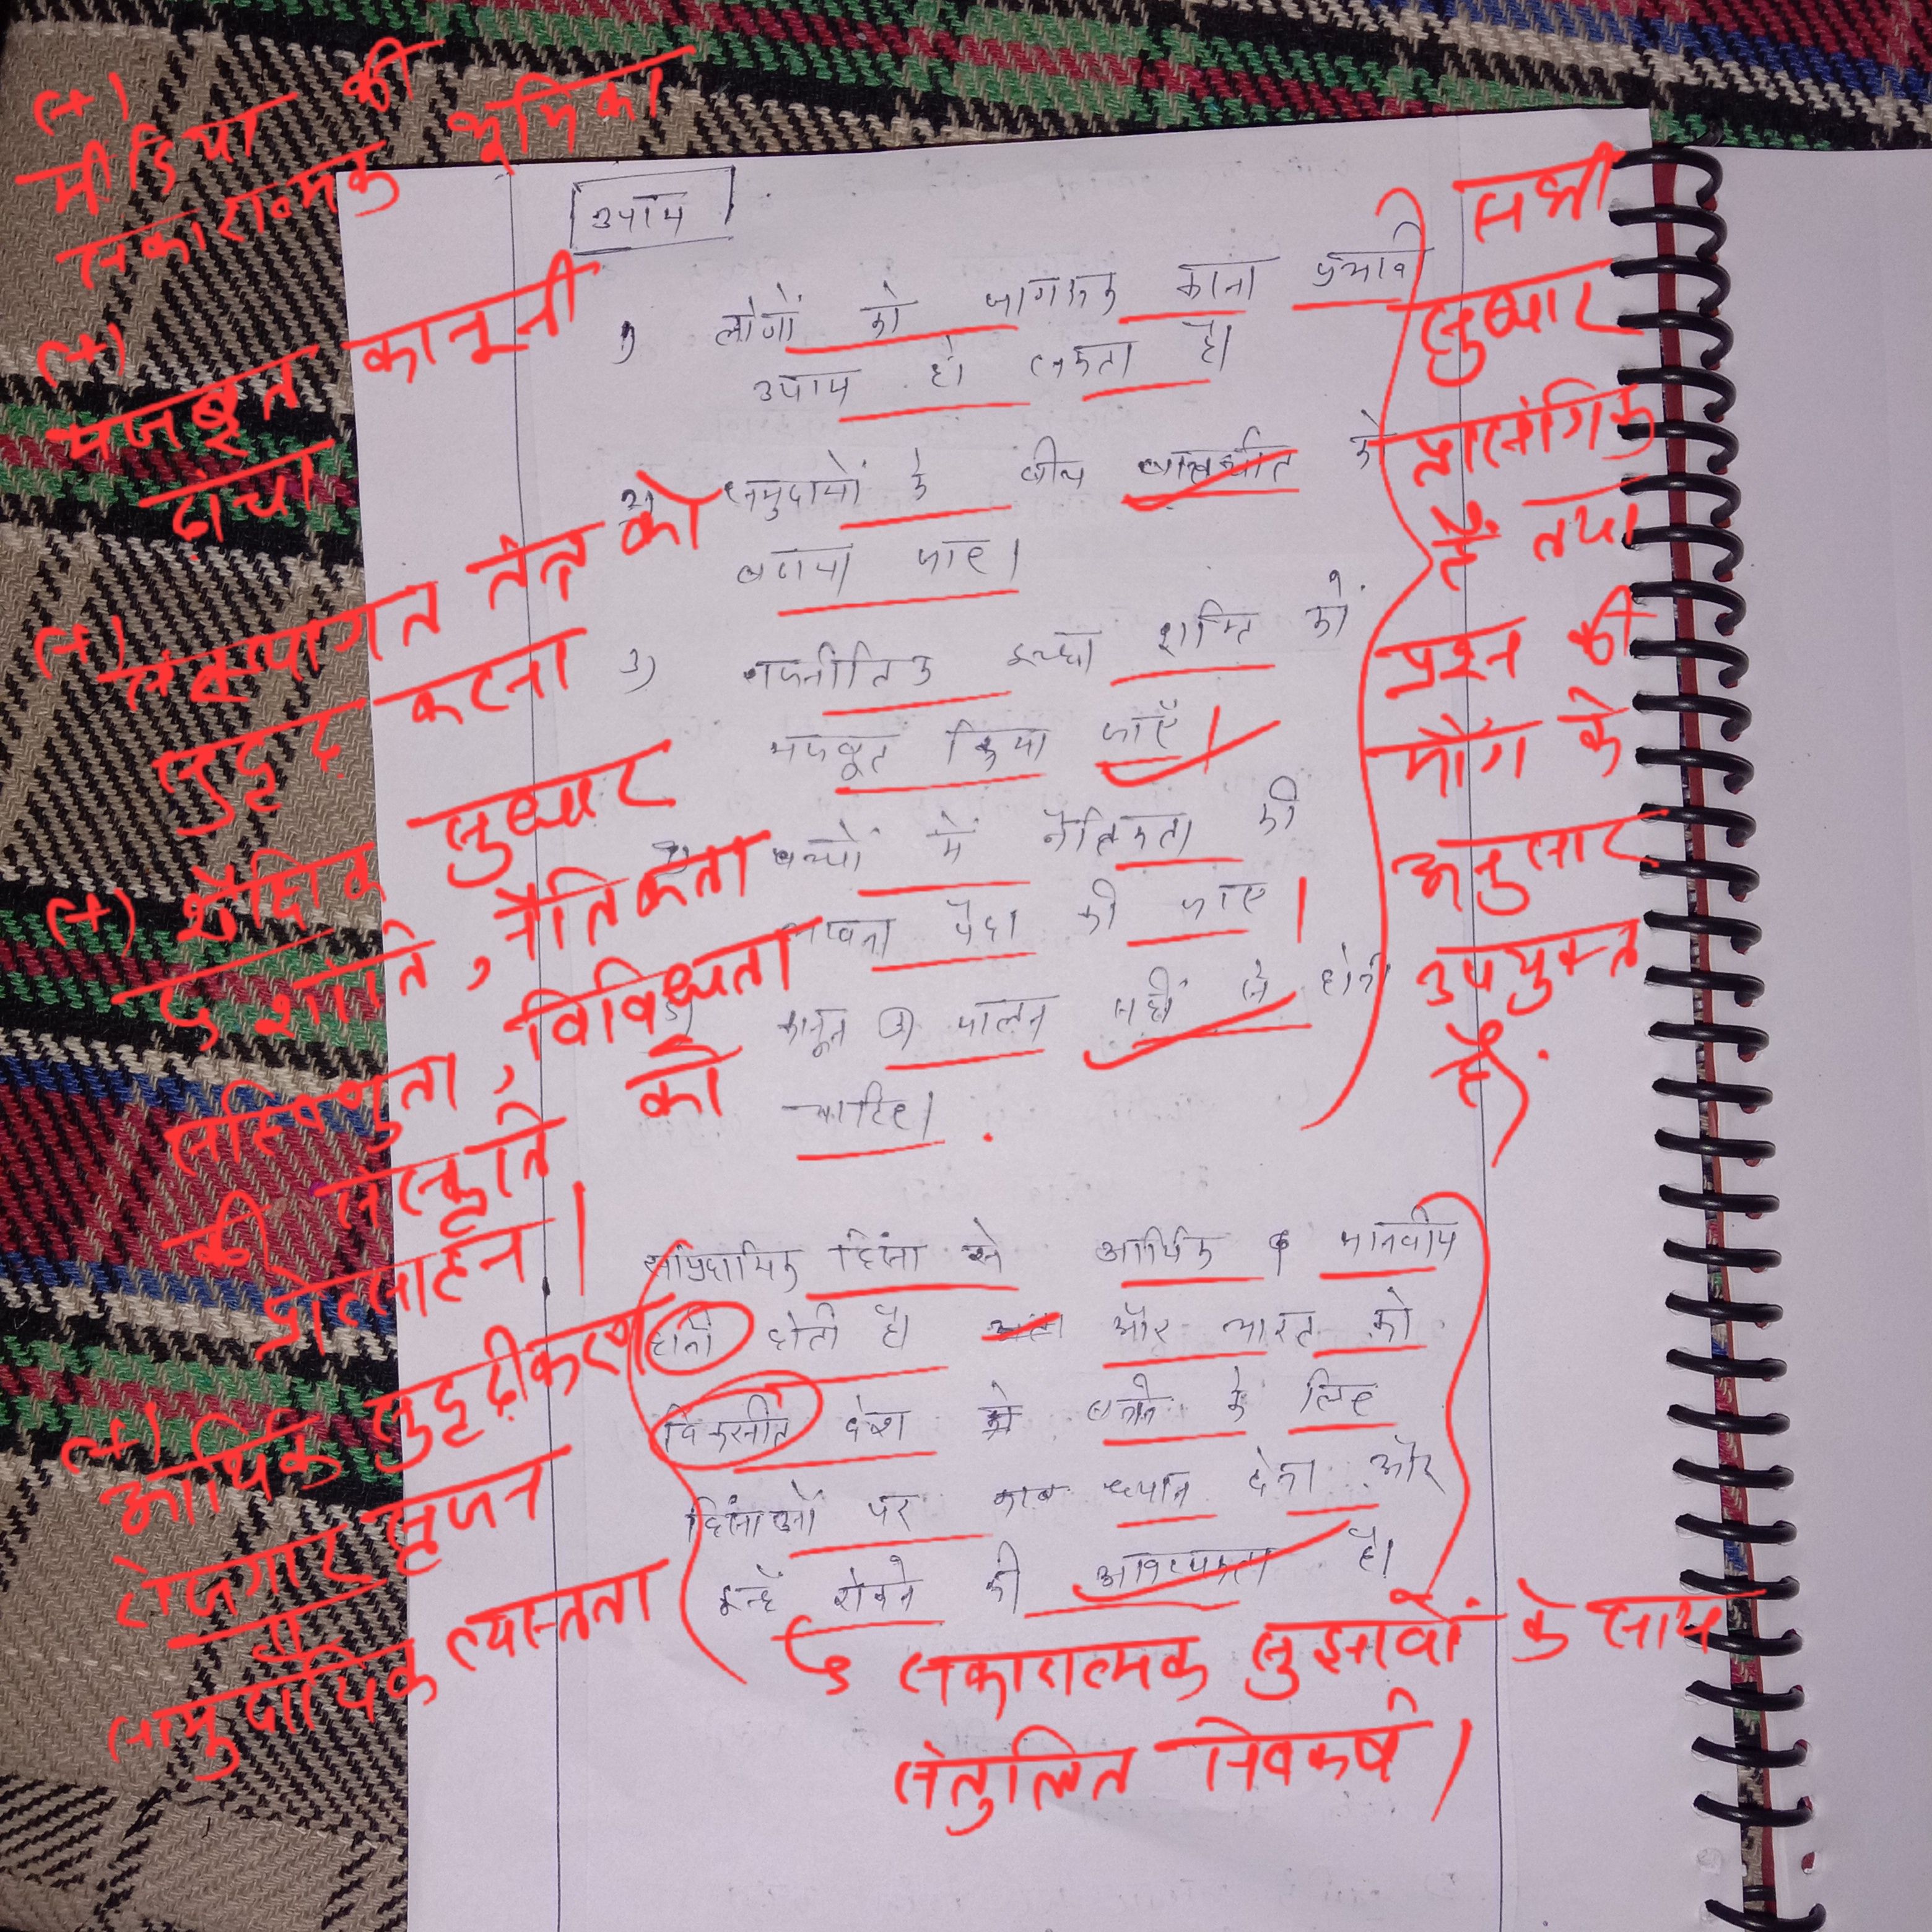 उपाय
1) लोगों को जागरूक करना प्रभावी
उपाय हो सकता है।
2) समुदायों के बीच बातचीत को
बढाया जाए।
3) राजनीतिक इच्छा शक्ति को
मजबूत किया जाऐं।
4) बच्चों में नैतिकता की
भावना पैदा की जाए।
5) कानून का पालन सही से होनी
चाहिए।
सांप्रदायिक हिंसा से आर्थिक व मानवीय
हानी होती है। और भारत को
विकसीत देश बनने के लिए
हिंसाओं पर ध्यान देना और
इन्हें रोकने की आवश्यकता है।
(+)
मीडिया की
सकारात्मक भूमिका
(+)
मजबूत कानूनी
ढांचा
(+)
संस्थागत तंत्र को
सुदृढ़ करना
(+) शैक्षिक सुधार
शांति, नैतिकता
सहिष्णुता, विविधता
की संस्कृति को
प्रोत्साहन।
(+)
आर्थिक सुदृढ़ीकरण
रोजगार सृजन
सामुदायिक व्यस्तता
सभी
सुधार
प्रासंगिक
हैं तथा
प्रश्न की
माँग के
अनुसार
उपयुक्त
हैं।
सकारात्मक सुझावों के साथ
संतुलित निष्कर्ष।